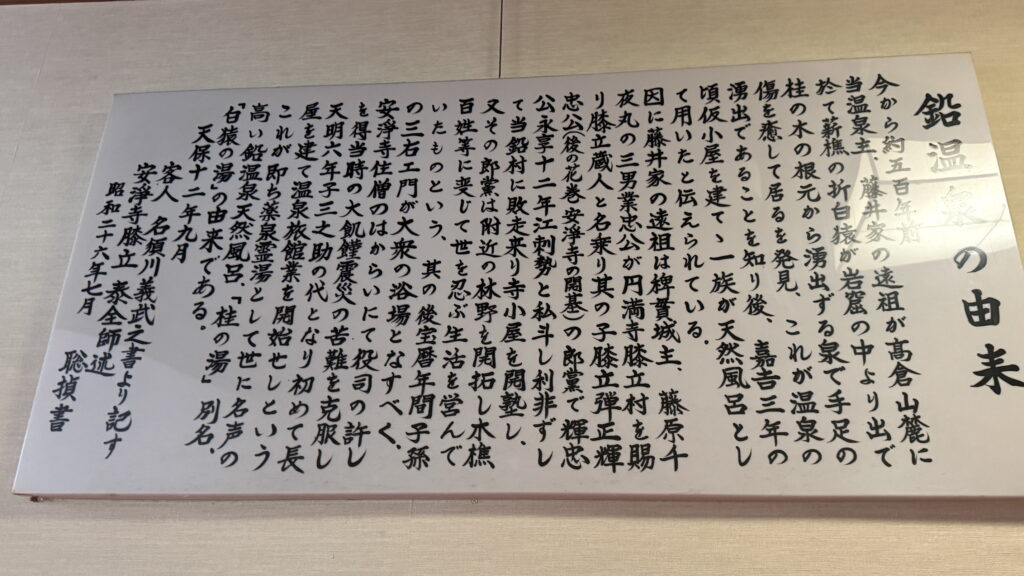 鉛温泉の由来
今から約五百年前
当温泉主、藤井家の遠祖が高倉山麓に
於て薪樵の折白猿が岩窟の中より出で
桂の木の根元から湧出ずる泉で手足の
傷を癒して居るを発見、これが温泉の
湧出であることを知り後、嘉吉三年の
頃仮小屋を建て、一族が天然風呂とし
て用いたと伝えられている。
因に藤井家の遠祖は稗貫城主、藤原千
夜丸の三男業忠公が円満寺膝立村を賜
り膝立蔵人と名乗り其の子膝立弾正輝
忠公(後の花巻安浄寺の開基)の郎党で輝忠
公永享十二年江刺勢と私斗し利非ずし
て当鉛村に敗走来り寺小屋を開塾し、
又その郎党は附近の林野を開拓し木樵
百姓等に変じて世を忍ぶ生活を営んで
いたものという、其の後宝暦年間子孫
の三右エ門が大衆の浴場となすべく、
安浄寺住僧のはからいにて役司の許し
を得当時の大飢饉震災の苦難を克服し
天明六年子三之助の代となり初めて長
屋を建て温泉旅館業を開始せしという
これが即ち薬泉霊湯として世に名声の
高い鉛温泉天然風呂、「桂の湯」別名、
「白猿の湯」の由来である。
天保十二年九月
客人 名須川義武之書より記す
安浄寺膝立 泰全師述
昭和二十六年七月 聡禎書